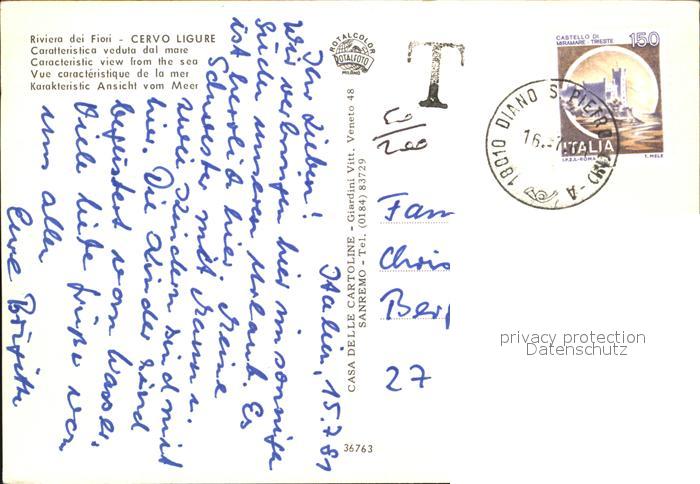 Riviera dei Fiori - CERVO LIGURE
Caratteristica veduta dal mare
Characteristic view from the sea
Vue caractéristique de la mer
Karakteristic Ansicht vom Meer
ROTALCOLOR
ROTALFOTO
MILANO
T
50/200
CASTELLO DI
MIRAMARE - TRIESTE
150
ITALIA
I.P.Z.S.-ROMA
T. MELE
18010 DIANO S. PIETRO
16.-7
Italien, 15.7.81
Ihr Lieben!
Wir verbringen hier im sonnigen
Süden unseren Urlaub. Es
ist herrlich hier. Meine
Schwester mit Mann u.
zwei Kindern sind mit
hier. Die Kinder sind
begeistert vom Wasser.
Viele liebe Grüße von
uns allen
Eure Brigitte
CASA DELLE CARTOLINE - Giardini Vitt. Veneto 48
SANREMO - Tel. (0184) 83729
36763
Fam
Chris
Berg
27
privacy protection
Datenschutz